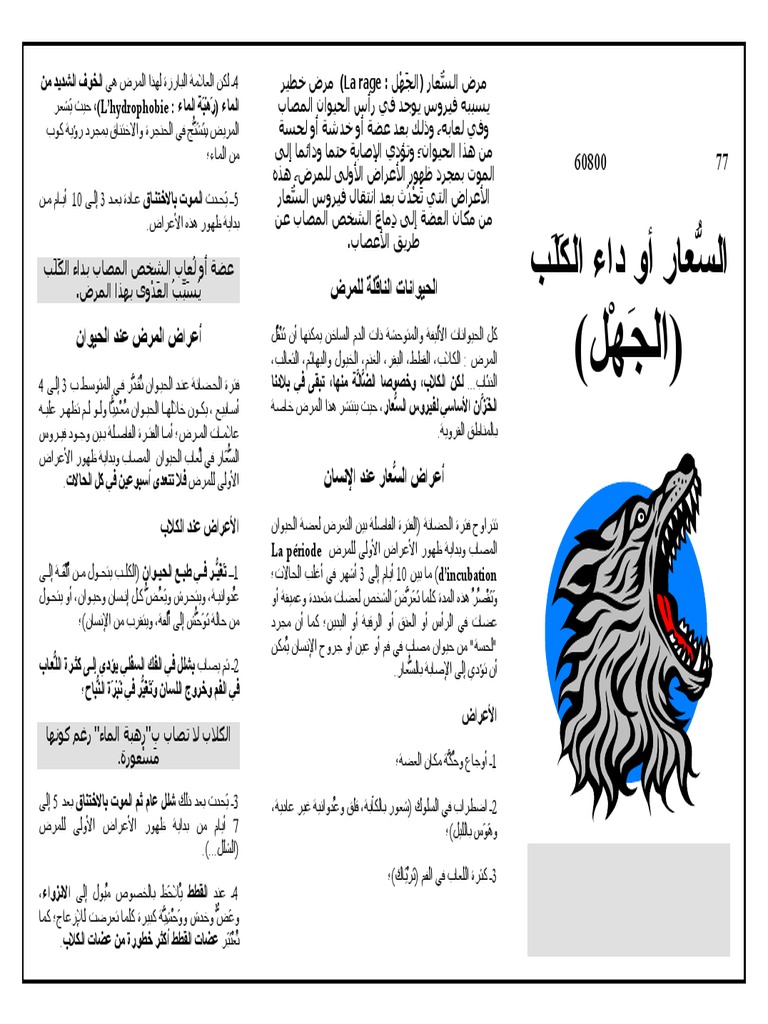 77 60800
السُّعار أو داء الكَلَب
(الجَهْل)
مرض السُّعار (الجَهْل : La rage) مرض خطير
يسببه فيروس يوجد في رأس الحيوان المصاب
وفي لعابه، وذلك بعد عضة أو خدشة أو لحسة
من هذا الحيوان. وتؤدي الإصابة حتما ودائما إلى
الموت بمجرد ظهور الأعراض الأولى للمرض، هذه
الأعراض التي تَحْدُث بعد انتقال فيروس السُّعار
من مكان العضة إلى دِماغ الشخص المصاب عن
طريق الأعصاب.
الحيوانات الناقِلَة للمرض
كل الحيوانات الأليفة والمتوحشة ذات الدم الساخن يمكنها أن تَنْقُل
المرض : الكلاب، القطط، البقر، الغنم، الخيول والبهائم، الثعالب،
الذئاب... لكن الكلاب، وخصوصا الضَّالَّة منها، تبقى في بلادنا
الخَزَّان الأساسي لفيروس السُّعار، حيث ينتشر هذا المرض خاصة
بالمناطق القروية.
أعراض السُّعار عند الإنسان
تتراوح فترة الحضانة (الفترة الفاصلة بين التعرض لعضة الحيوان
المصاب وبداية ظهور الأعراض الأولى للمرض La période
d'incubation) ما بين 10 أيام إلى 3 أشهر في أغلب الحالات؛
وتَقْصُرُ هذه المدة كلما تعرَّضَ الشخص لعضات متعددة وعميقة أو
عضات في الرأس أو العنق أو الرقبة أو اليدين؛ كما أن مجرد
"لحسة" من حيوان مصاب في فم أو عين أو جروح الإنسان يُمكن
أن تؤدي إلى الإصابة بالسُّعار.
الأعراض
1- أوجاع وحُكَّة مكان العضة؛
2- اضطراب في السلوك (شعور بالكآبة، قلق وعُدوانية غير عادية،
وهَوَس بالليل)؛
3- كثرة اللعاب في الفم (تريَّاك)؛
4- لكن العلامة البارزة لهذا المرض هي الخوف الشديد من
الماء (رَهْبَة الماء : L'hydrophobie)، حيث يَشعر
المريض بتَشَنُّج في الحنجرة والاختناق بمجرد رؤية كوب
من الماء؛
5- يَحدث الموت بالاختناق عادة بعد 3 إلى 10 أيام من
بداية ظهور هذه الأعراض.
عضة أو لُعاب الشخص المصاب بداء الكَلَب
يُسَبِّبُ العَدْوى بهذا المرض.
أعراض المرض عند الحيوان
فترة الحضانة عند الحيوان تُقدَّر في المتوسط ب 3 إلى 4
أسابيع، يكون خلالها الحيوان مُعْديًا ولو لم تظهر عليه
علامات المرض؛ أما الفترة الفاصلة بين وجود فيروس
السُّعار في لُعاب الحيوان المصاب وبداية ظهور الأعراض
الأولى للمرض فلا تتعدى أسبوعين في كل الحالات.
الأعراض عند الكلاب
1- تَغَيُّر في طبع الحيوان (الكلب يتحول من ألفة إلى
عُدوانية، ويتحرش ويَعَضُّ كل إنسان وحيوان، أو يتحول
من حالة تَوَحُّش إلى ألفة، ويتقرب من الإنسان)؛
2- ثم يصاب بشلل في الفك السفلي يؤدي إلى كثرة اللُّعاب
في الفم وخروج اللسان وتَغَيُّر في نَبْرَة النُّباح؛
الكلاب لا تصاب بِ"رهبة الماء" رغم كونها
مَسْعورة.
3- يَحدث بعد ذلك شلل عام ثم الموت بالاختناق بعد 5 إلى
7 أيام من بداية ظهور الأعراض الأولى للمرض
(الشلل...).
4- عند القطط يُلاحَظ بالخصوص ميُول إلى الانزواء،
وعَضٌّ وخدش ووَحْشِيَّة كبيرة كلما تعرضت للإزعاج؛ كما
تُعْتَبَر عضات القطط أكثر خطورة من عضات الكلاب.